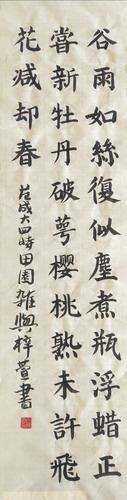 谷雨如絲復似塵煮瓶浮蜡正
嘗新牡丹破萼櫻桃熟未許飛
花減却春
范成大四時田園雜興梓萱書